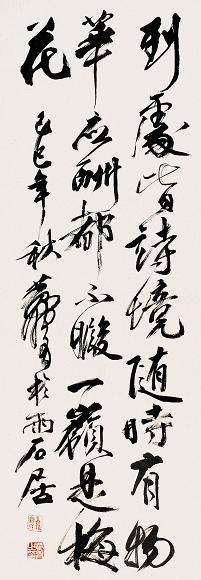 到處皆詩境隨時有物
華應酬都不暇一嶺是梅
花
己巳年秋於雨石居